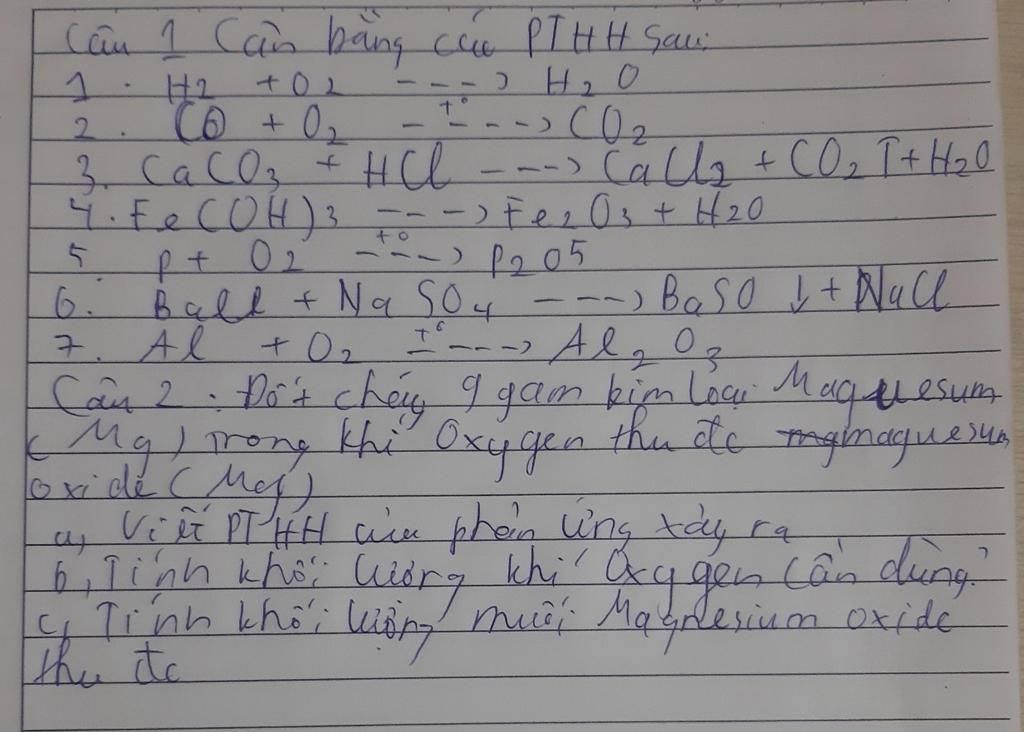 Câu 1 Cân bằng các PTHH sau:
1. H2 + O2 ---> H2O
2. CO + O2 -t°--> CO2
3. CaCO3 + HCl ---> CaCl2 + CO2↑ + H2O
4. Fe(OH)3 ---> Fe2O3 + H2O
5. P + O2 -t°--> P2O5
6. + Na SO4 ---> BaSO ↓ + NaCl
7. Al + O2 -t°--> Al2O3
Câu 2. Đốt cháy 9 gam kim loại Maguesum
(Mg) trong khí Oxygen thu đc maguesum
oxide
a, Viết PTHH của phản ứng xảy ra
b, Tính khối lượng khí Oxygen cần dùng?
c, Tính khối lượng muối Magnesium oxide
thu đc